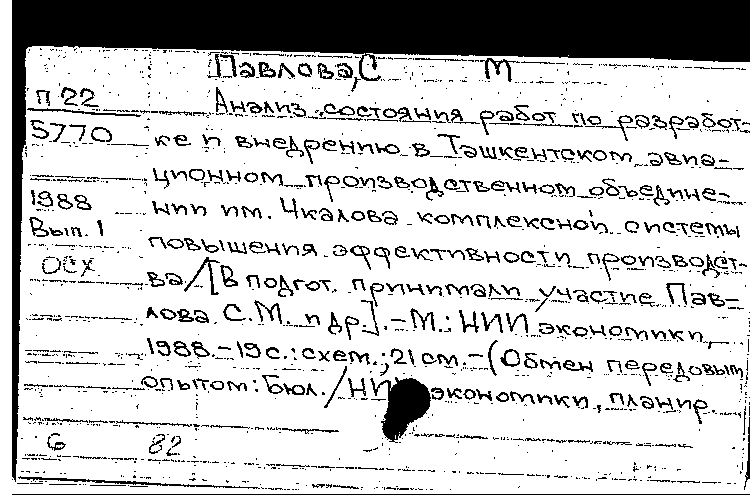 Павлова, С М
П 22 Анализ состояния работ по разработ-
5770 ке и внедрению в Ташкентском авиа-
ционном производственном объедине-
1988 нии им. Чкалова комплексной системы
Вып. 1 повышения эффективности производст-
ОСХ ва/[В подгот. принимали участие Пав-
лова С.М. и др.].-М.: НИИ экономики,
1988.-19с.: схем.; 21см.-(Обмен передовым
опытом: Бюл./НИИ экономики, планир.
6 82